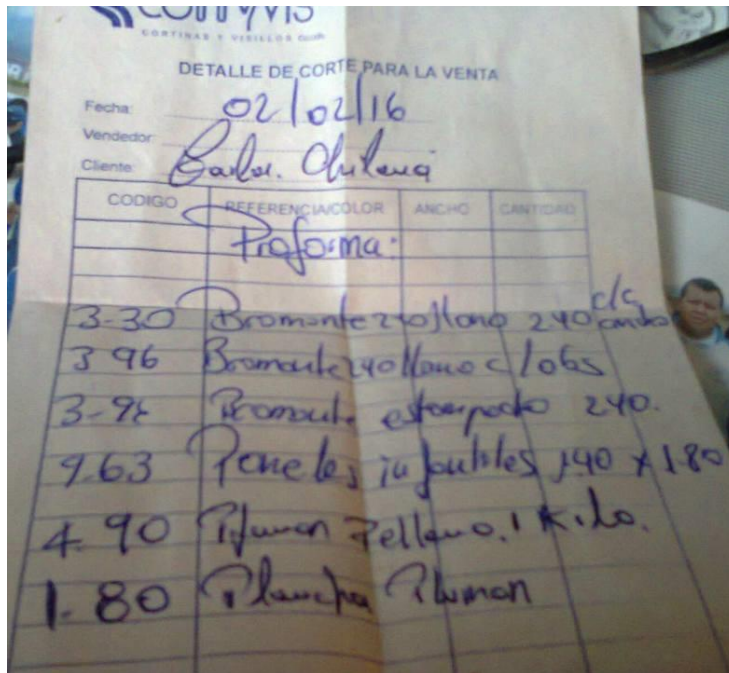 CORTINAS Y VISILLOS
DETALLE DE CORTE PARA LA VENTA
Fecha: 02/02/16
Vendedor:
Cliente: Carlos.
CODIGO REFERENCIA/COLOR ANCHO CANTIDAD
Proforma:
3-30 Bromante 240 llano 240 c/c
3 96 Bromante 240 llano c/obs
3-98 Bromante estampado 240.
9.63 Paneles infantiles 140 x 1.80
4.90 Pluman Relleno. 1 Kilo.
1.80 Plancha Pluman